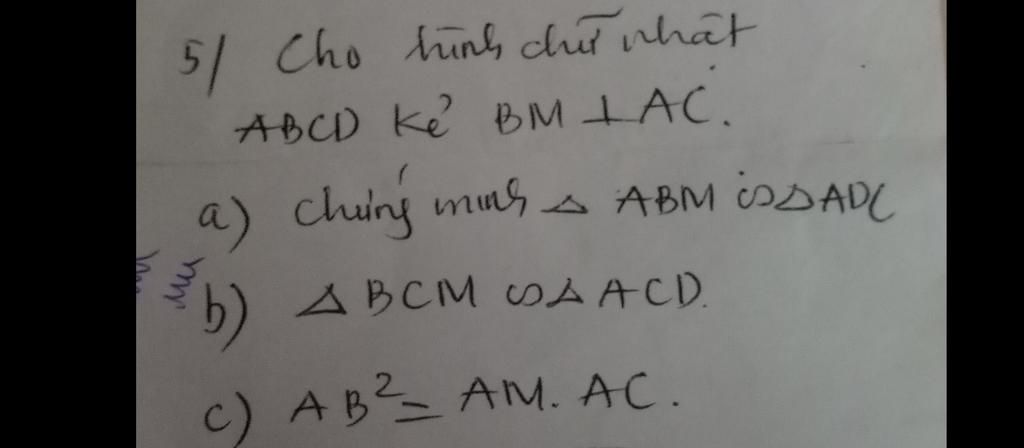 5/ Cho hình chữ nhật
ABCD kẻ BM ⊥ AC.
a) Chứng minh △ ABM ∽ △ ADC
b) △ BCM ∽ △ ACD.
c) AB² = AM. AC.